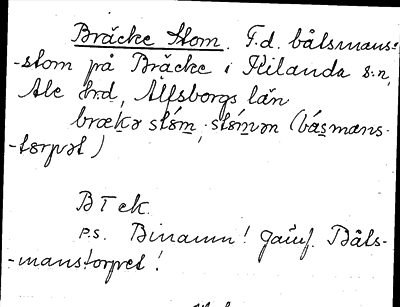 Bräcke Stom. F.d. båtsmans-
-stom på Bräcke i Kilanda s:n,
Ale hrd, Älfsborgs län
brækə stǿm, stǿmən (básmans-
-tørpət)
BTek.
P.S. Binamn! Jämf. Båts-
-manstorpet!